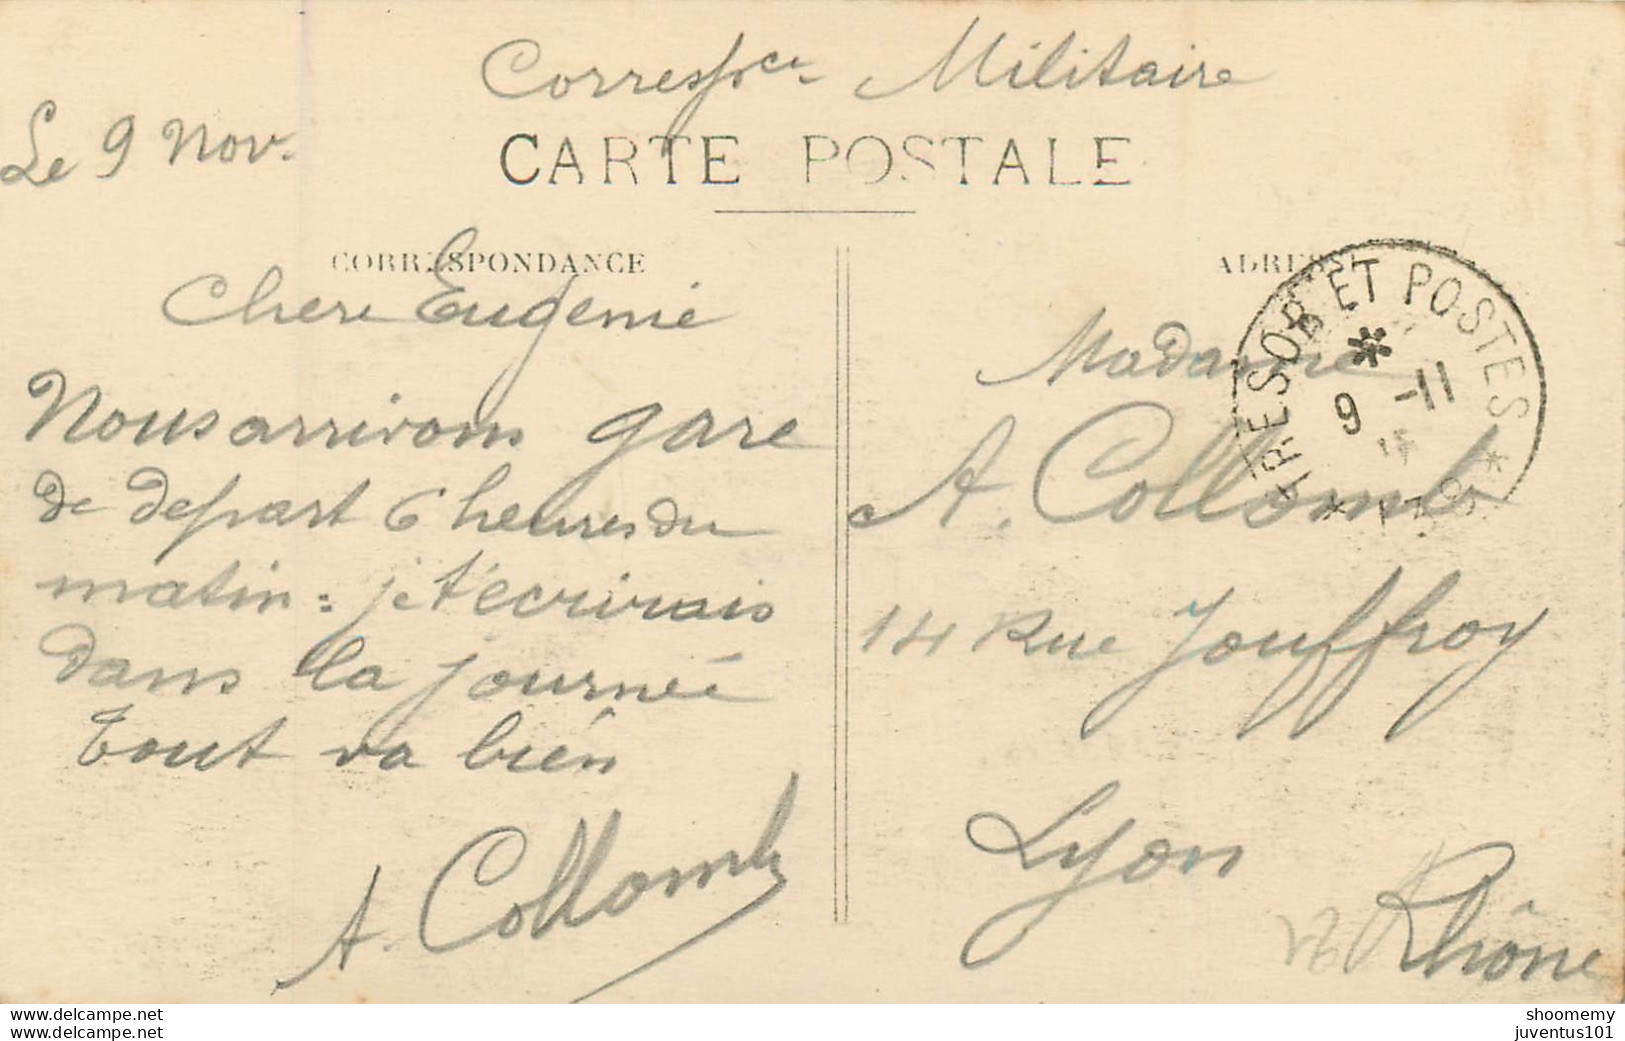 Corresp ce Militaire
Le 9 Nov.
CARTE POSTALE
CORRESPONDANCE
ADRESSE
Chere Eugenie
Nous arrivons gare
de depart 6 heures du
matin = je t'écrirais
dans la journeé
Tout va bien
A. Collomb
TRESOR ET POSTES
9 -11
15
Madame
A. Collomb
14 Rue Jouffroy
Lyon
Rhône
www.delcampe.net
www.delcampe.net
shoomemy
juventus101